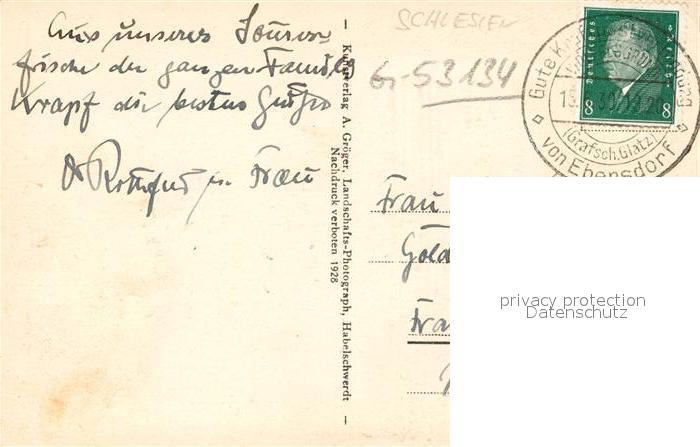 Aus unserer Sommer
frische der ganzen Familie
Krapf die besten Grüße
Dr u. Frau
— Kunstverlag A. Gröger, Landschafts-Photograph, Habelschwerdt —
Nachdruck verboten 1928
SCHLESIEN
Gr-53134
Deutsches Reich
8 8
Gute
(Grafsch. Glatz)
von Ebersdorf
Frau
Gold
Fra
privacy protection
Datenschutz